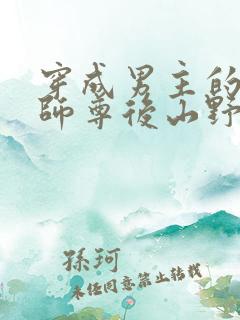 穿成男主的
師尊後山野
孫珂
未经同意禁止转载